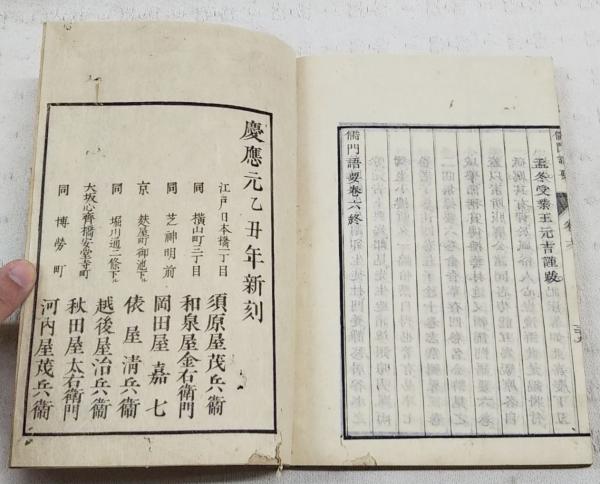 孟冬受業王元吉謹跋
儒門語要卷六終
慶應元乙丑年新刻
江戸日本橋一丁目 須原屋茂兵衞
同 横山町三丁目 和泉屋金右衞門
同 芝神明前 岡田屋嘉七
京 麩屋町御池下ル 俵屋清兵衞
同 堀川通二條下ル 越後屋治兵衞
大坂心齊橋安堂寺町 秋田屋太右衞門
同 博勞町 河内屋茂兵衞